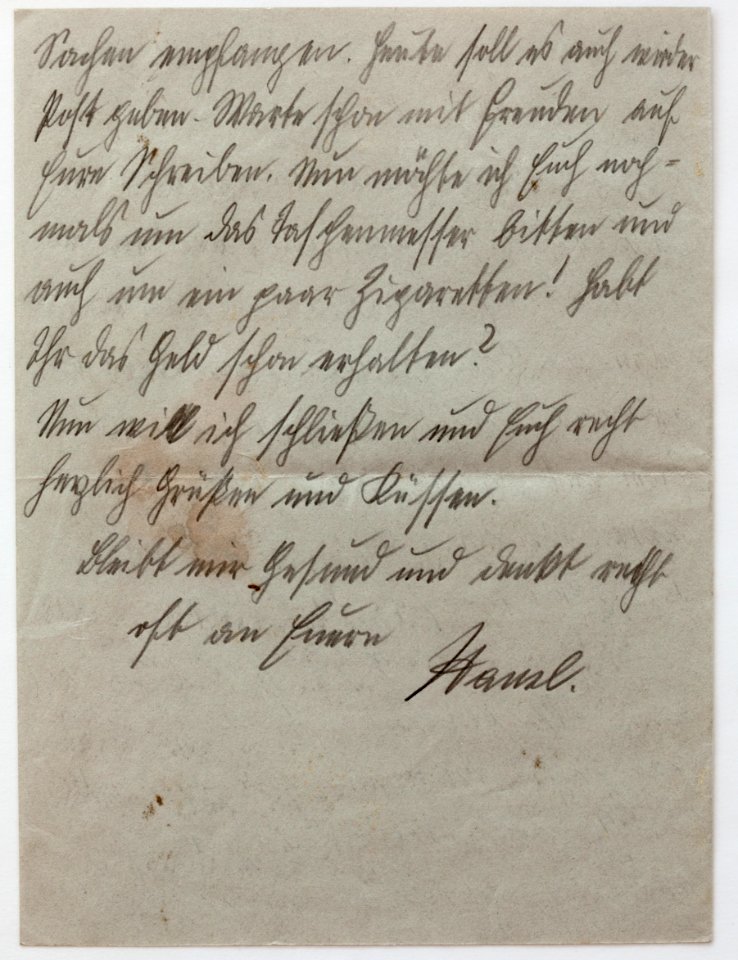 Sachen empfangen. Heute soll es auch wieder
Post geben. Warte schon mit Freuden auf
Eure Schreiben. Nun möchte ich Euch noch=
mals um das Taschenmesser bitten und
auch um ein paar Zigaretten! Habt
Ihr das Geld schon erhalten?
Nun will ich schließen und Euch recht
herzlich Grüßen und Küssen.
Bleibt mir Gesund und denkt recht
oft an Euern